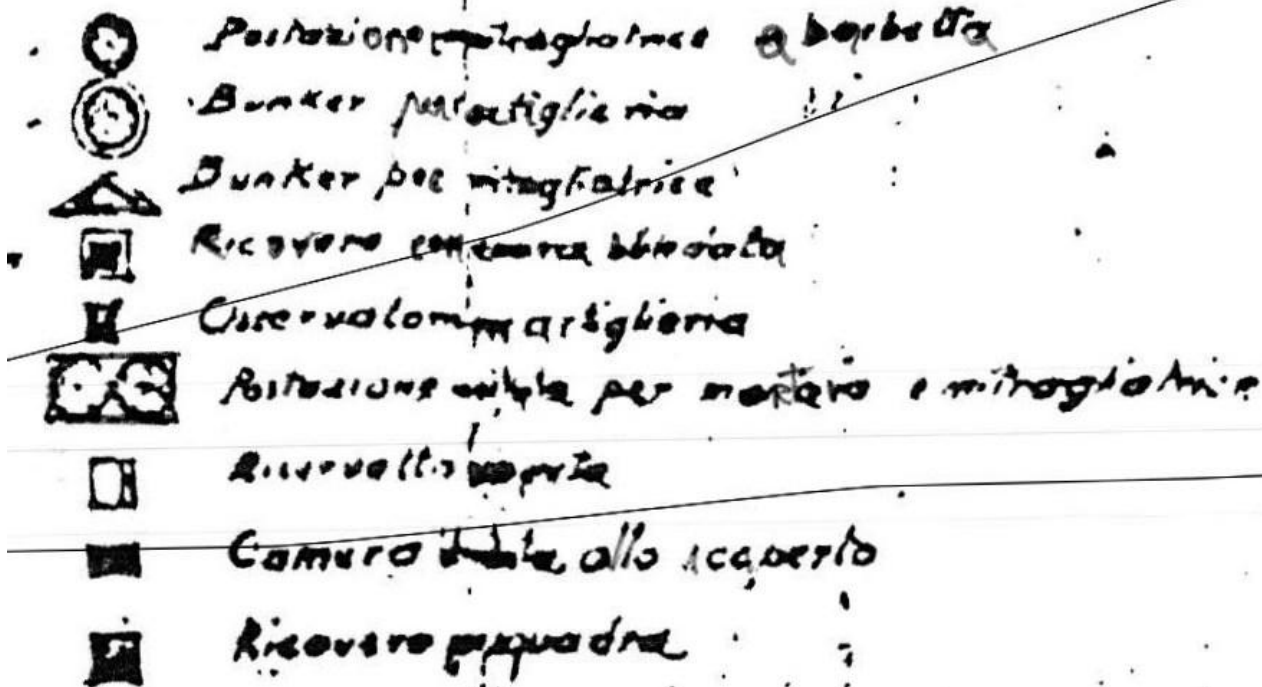 Postazione mitragliatrice a barbetta
Bunker per artiglieria
Bunker per mitragliatrice
Ricovero camera blindata
Osservatorio artiglieria
Postazione per mortaio e mitragliatrice
coperta
Camera allo scoperto
Ricovero squadra